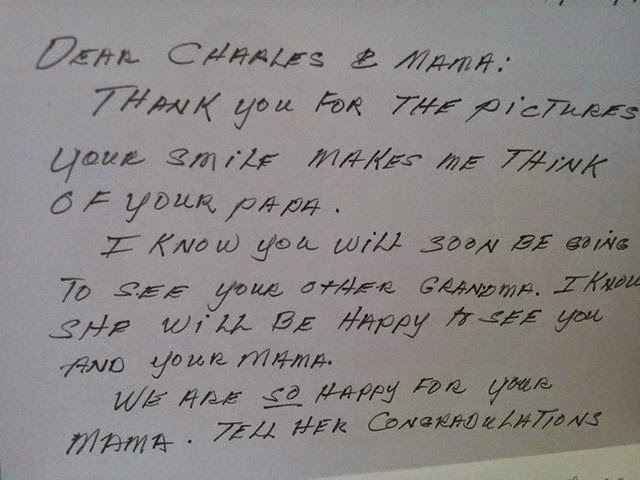 DEAR CHARLES & MAMA:
THANK you FOR THE PiCTURES
YOUR SMiLE MAKES ME THiNK
OF YOUR PAPA.
I KNOW you WiLL SOON BE GOING
TO SEE YOUR OTHER GRANDMA. I KNOW
SHE WiLL BE HAPPY to SEE YOU
AND YOUR MAMA.
WE ARE SO HAPPY FOR YOUR
MAMA. TELL HER CONGRADULATIONS